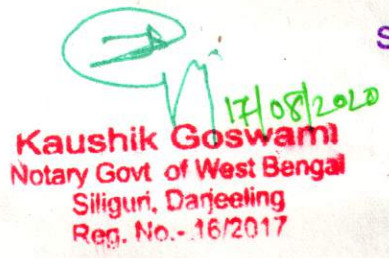 S
17/08/2020
Kaushik Goswami
Notary Govt of West Bengal
Siliguri, Darjeeling
Reg. No.- 16/2017